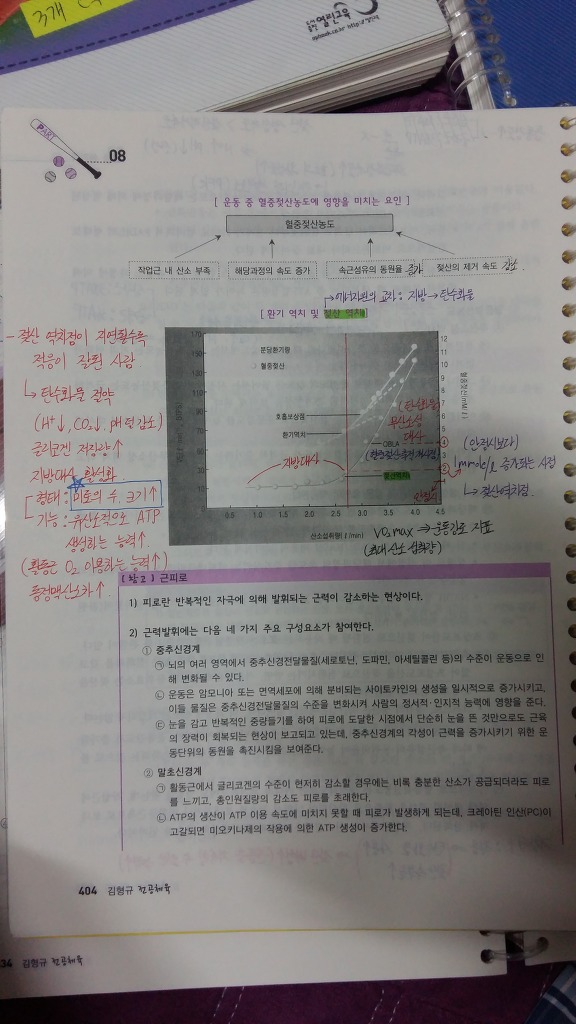 3개
열린교육
PART
08
[ 운동 중 혈중젖산농도에 영향을 미치는 요인 ]
혈중젖산농도
작업근 내 산소 부족
해당과정의 속도 증가
속근섬유의 동원율 증가
젖산의 제거 속도 감소
→에너지원의 교차 : 지방 → 탄수화물
[ 환기 역치 및 젖산 역치 ]
- 젖산 역치점이 지연될수록
적응이 잘된 사람
↳ 탄수화물 절약
(H+↓, CO₂↓, pH 덜 감소)
글리코겐 저장량↑
지방대사 활성화
형태 : 미토의 수, 크기↑
기능 : 유산소적으로 ATP
생성하는 능력↑
(활동근 O₂ 이용하는 능력↑)
동정맥산소차↑.
170
150
130
110
90
70
50
30
10
분당환기량
혈중젖산
호흡보상점
환기역치
지방대사
(탄수화물)
무산소성
대사
OBLA
젖산역치
안정시
12
11
10
9
8
7
6
5
④
3
2
1
혈중젖산(mM/ℓ)
(안정시보다)
1mmol/ℓ 증가되는 시점
↳ 젖산역치점
0.5 1.0 1.5 2.0 2.5 3.0 3.5 4.0 4.5
산소섭취량(ℓ/min)
VO₂max ⇒ 운동강도 지표
(최대 산소 섭취량)
[참고] 근피로
1) 피로란 반복적인 자극에 의해 발휘되는 근력이 감소하는 현상이다.
2) 근력발휘에는 다음 네 가지 주요 구성요소가 참여한다.
① 중추신경계
㉠ 뇌의 여러 영역에서 중추신경전달물질(세로토닌, 도파민, 아세틸콜린 등)의 수준이 운동으로 인
해 변화될 수 있다.
㉡ 운동은 암모니아 또는 면역세포에 의해 분비되는 사이토카인의 생성을 일시적으로 증가시키고,
이들 물질은 중추신경전달물질의 수준을 변화시켜 사람의 정서적·인지적 능력에 영향을 준다.
㉢ 눈을 감고 반복적인 중량들기를 하여 피로에 도달한 시점에서 단순히 눈을 뜬 것만으로도 근육
의 장력이 회복되는 현상이 보고되고 있는데, 중추신경계의 각성이 근력을 증가시키기 위한 운
동단위의 동원을 촉진시킴을 보여준다.
② 말초신경계
㉠ 활동근에서 글리코겐의 수준이 현저히 감소할 경우에는 비록 충분한 산소가 공급되더라도 피로
를 느끼고, 총인원질량의 감소도 피로를 초래한다.
㉡ ATP의 생산이 ATP 이용 속도에 미치지 못할 때 피로가 발생하게 되는데, 크레아틴 인산(PC)이
고갈되면 미오키나제의 작용에 의한 ATP 생성이 증가한다.
404 김형규 전공체육
34 김형규 전공체육